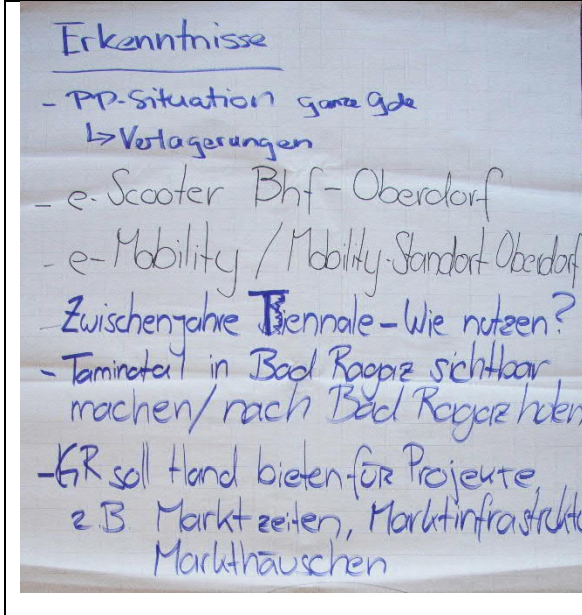 Erkenntnisse
- PP-Situation ganze Gde
↳ Verlagerungen
- e-Scooter Bhf-Oberdorf
- e-Mobility / Mobility-Standort Oberdorf
Zwischenjahre Triennale - Wie nutzen?
- Taminatal in Bad Ragaz sichtbar
machen/nach Bad Ragaz holen
- GR soll Hand bieten für Projekte,
z.B Marktzeiten, Marktinfrastruktu
Markthäuschen